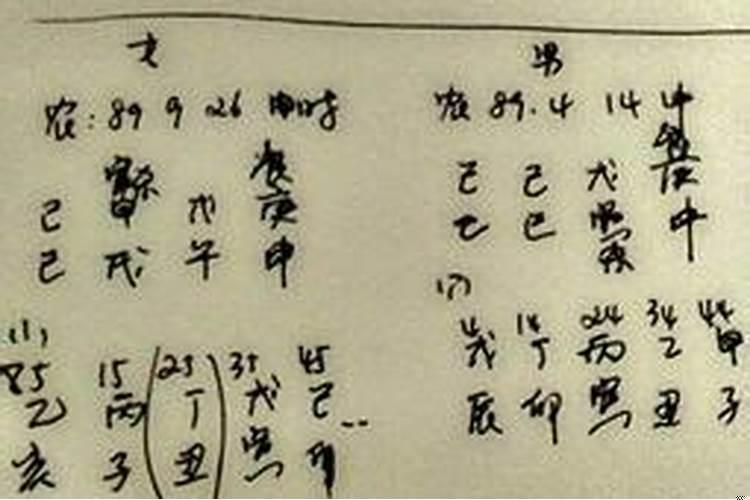 女
农: 89 9 26 申时
己 甲 戊 庚
己 戌 午 申
(1)
5 15 25 35 45
乙 丙 丁 戊 己
亥 子 丑 寅 卯
男
农 89.4 14 申
己 己 戊 庚
巳 巳 寅 申
(1)
4 14 24 34 44
戊 丁 丙 乙 甲
辰 卯 寅 丑 子